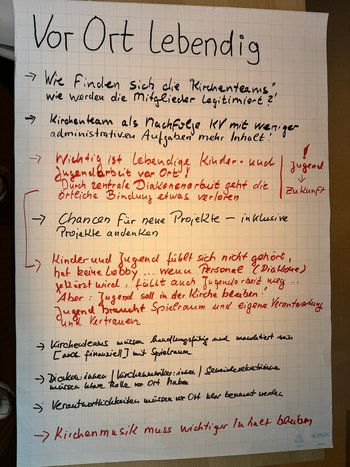 Vor Ort Lebendig
→ Wie finden sich die "Kirchenteams",
wie werden die Mitglieder legitimiert?
→ Kirchenteam als Nachfolge KV mit weniger
administrativen Aufgaben mehr Inhalt!
→ Wichtig ist lebendige Kinder- und
Jugendarbeit vor Ort!
Durch zentrale Diakonenarbeit geht die
örtliche Bindung etwas verloren
! Jugend
↓
Zukunft
→ Chancen für neue Projekte – inklusive
Projekte andenken
→ Kinder und Jugend fühlt sich nicht gehört,
hat keine Lobby ... wenn Personal (Diakone)
gekürzt wird, fällt auch Jugendarbeit weg...
Aber: Jugend soll in der Kirche bleiben!
Jugend braucht Spielraum und eigene Verantwortung
und Vertrauen
→ Kirchenteams müssen handlungsfähig und mandatiert sein
[auch finanziell] mit Spielraum
→ Diakon:innen / Kirchenmusiker:innen / Gemeindesekretärinnen
müssen klare Rolle vor Ort haben
→ Verantwortlichkeiten müssen vor Ort klar benannt werden
→ Kirchenmusik muss wichtiger Inhalt bleiben